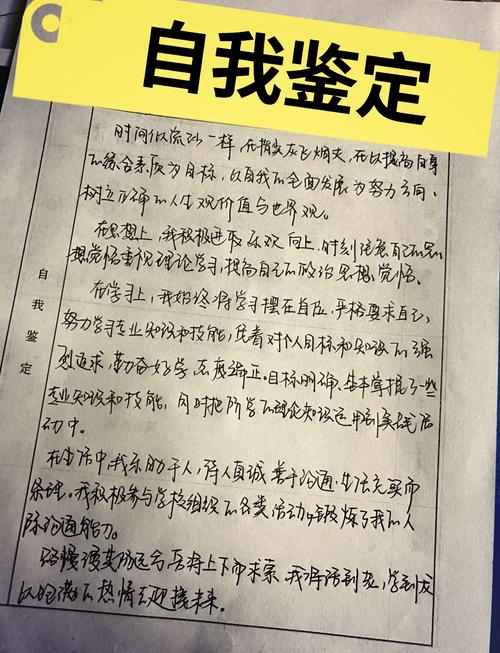 自我鉴定
自我鉴定
时间似流沙一样,在指尖灰飞烟灭,在以提高自身
的综合素质为目标,以自我的全面发展为努力方向,
树立正确的人生观价值与世界观。
在思想上,我积极进取乐观向上,时刻注意自己的思
想觉悟重视理论学习,提高自己的政治思想觉悟。
在学习上,我始终将学习摆在首位,严格要求自己,
努力学习专业知识和技能,凭着对个人目标和知识的强
烈追求,勤奋好学态度端正目标明确、基本掌握了一些
专业知识和技能,同时把所学的理论知识运用到实践活
动中。
在生活中,我乐助于人,待人真诚善于沟通,生活充实而
条理。我积极参与学校组织的各类活动中锻炼了我的人
际沟通能力。
路慢漫其修远兮,吾将上下而求索,我将活到老,学到老
以饱满的热情去迎接未来。